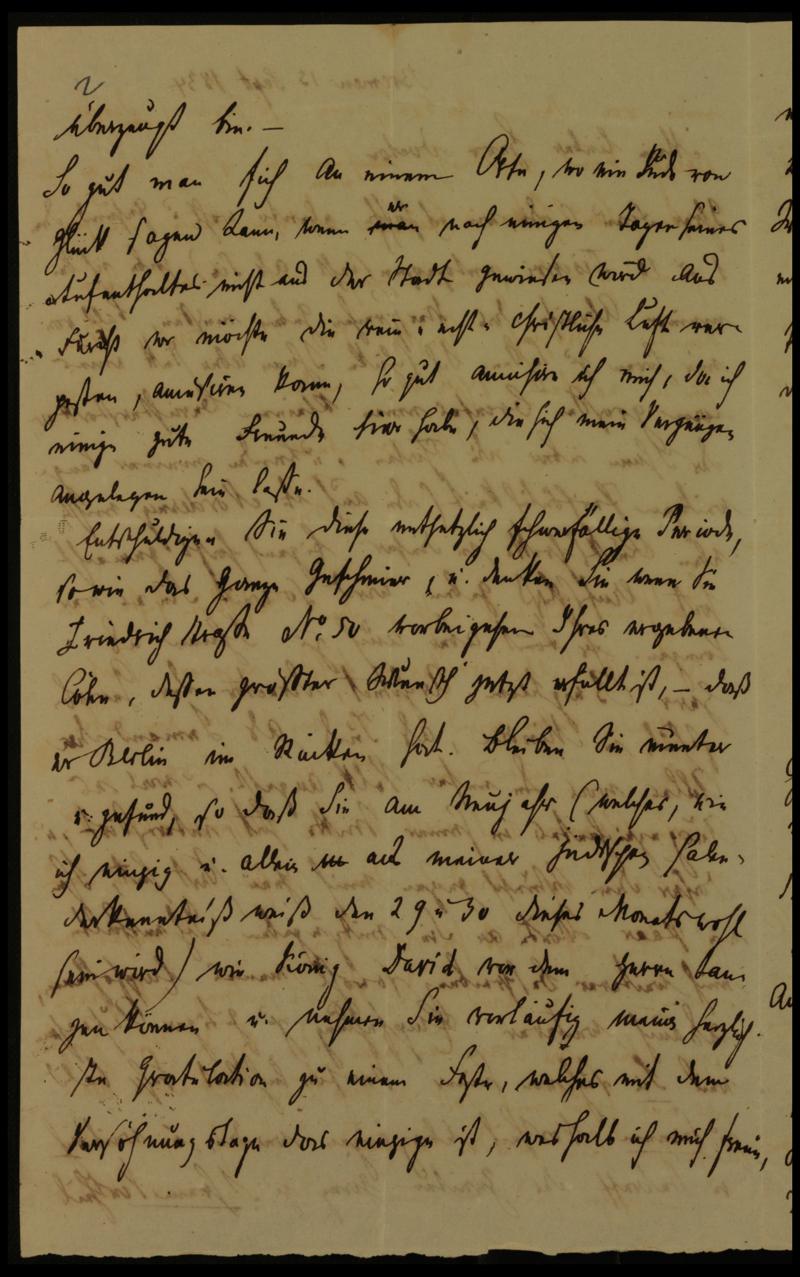 2
überzeugt bin. —
So gut man sich an einem Orte, wo ein Jude von
Glück sagen kann, wenn er nach einigen Tagen seines
Aufenthaltes nicht aus der Stadt gewiesen wird aus
Furcht er möchte die rein u. echt-christliche Luft ver-
pesten, amüsiren kann, so gut amüsire ich mich, da ich
einige gute Freunde hier habe, die sich mein Vergnügen
angelegen sein lassen.
Entschuldigen Sie diese entsetzlich schwerfällige Periode,
sowie das ganze Geschmier, u. denken Sie wenn Sie
Friedrich Strasse No. 50 vorbeigehen Ihres ergebenen
Cohn, dessen größter Wunsch jetzt erfüllt ist, — daß
er Berlin im Rücken hat. Bleiben Sie munter
u. gesund, so daß Sie am Neujahr (welches, wie
ich einzig u. allein aus meiner jüdischen Kalen-
derkenntniß weiß den 29 u 30 dieses Monats wohl
sein wird) wie König David vor dem Herrn tan-
zen können u. nehmen Sie vorläufig meine herzlich-
ste Gratulation zu einem Feste, welches mit dem
Versöhnungstage das einzige ist, weshalb ich mich freue,